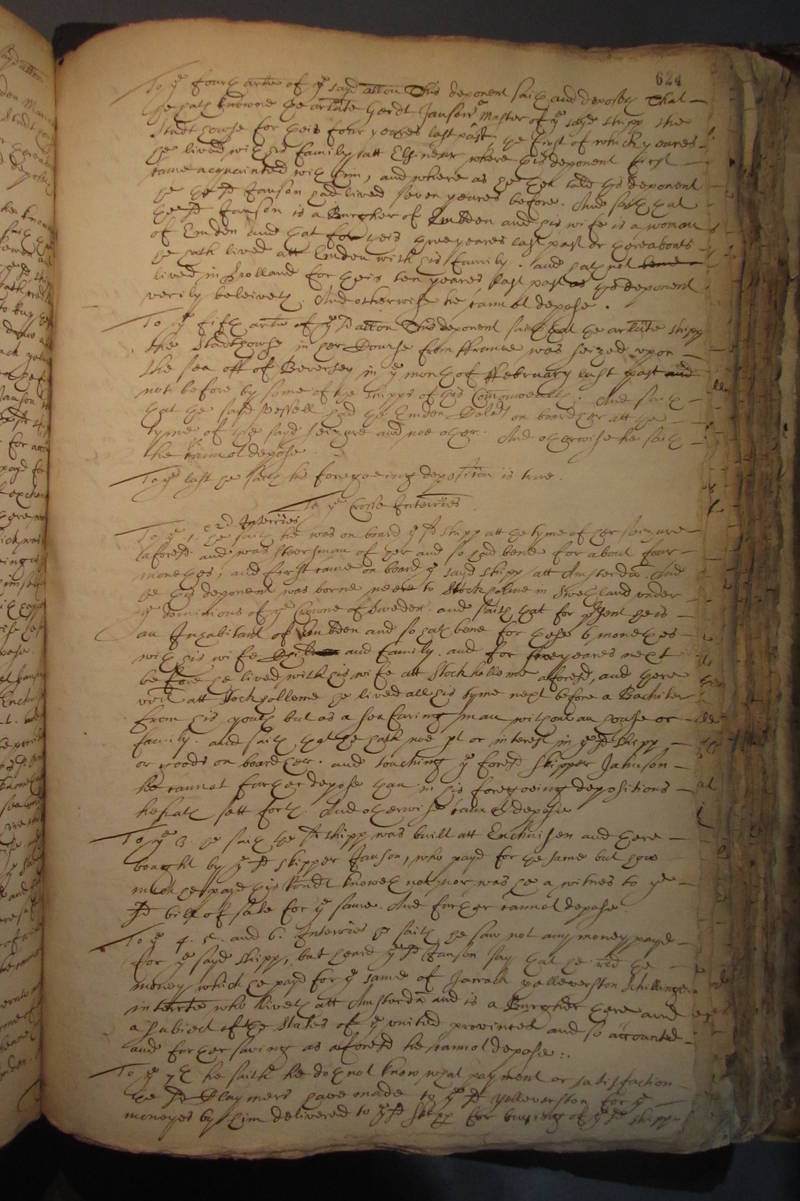 624
To ye fourth artle of ye sayd allon This deponent saith and deposeth That
he hath knowne the arlate Gerdt Janson Master of ye sayd shipp the
Stadthouse for theis four yeares last past, the first of which yeares
he lived with his family att Elsineur where this deponent first
came acquainted with him, and where as hee then told this deponent
he the sd Janson had lived seven yeares before. And saith that
the sd Janson is a Burgher of Embden and his wife is a woman
of Emden and that for theis three yeares last past or thereabouts
he hath lived att Emden with his family. and hath not
lived in Holland for theis ten yeares last past as this deponent
verily beleiveth. And otherwise he cannot depose.
To ye fifth artle of ye sd allon This deponent saith that the arlate shipp
the Stadthouse in her Course from ffrance was seized upon
the sea off of Beversey in ye moneth of ffebruary last past and
not before by some of the shipps of this Commonwealth; And saith
that the said vessell had the Emden on board her att the
tyme of the said seizure and noe other. And otherwise he saith
he cannot depose.
To ye last he saith his foregoeing deposition is true.
To ye Crosse Interries
To ye 1. 2d Interries he saith he was on board ye sd shipp at the tyme of her seizure
aforesd and was Steersman of her and so had bene for about four
monethes, and first came on board ye sayd shipp att Amsterda. And
he this deponent was borne neere to Stockholme in Swethland under
ye dominions of ye Crowne of Sweden. and saith that for psent he is
an Inhabitant of Embden and so hath bene for theis 6 monethes
with his wife and family. and for five yeares next
before he lived with his wife att Stockholme aforesd, and there
att Stockholme he lived all his tyme next before a Bachiler
from his youth but as a sea faring man without an house or
family. and saith that he hath noe pt or interest in ye sd shipp
or goods on board her. and touching ye foresd Skipper Johnson
he cannot further depose than in his foregoeing depositions
he hath sett forth. And otherwise cannot depose
To ye 3 he saith the sd shipp was built att Enchuisen and there
bought by ye sd skipper Janson, who payd for the same but how
much he payd this Rendt knoweth not, nor was he a witnes to ye
sd bill of sale for ye same. And further cannot depose.
To ye 4. 5. and 6. Interries he saith he saw not any money payd
for ye sayd shipp, but heard ye sd Janson say that he had the
money which he payd for ye same of Jarrolt
interrte who liveth att Amsterda and is a Burgher there and
a subiect of the States of ye united provinces and so accounted
and further saving as aforesd he cannot depose:.
To ye 7th he saith he doth not know what payment or satisfaction
the sd Claymers have made to ye sd Yellverston for ye
moneyes by him delivered to ye sd Skippr for buyeing of ye sd shipp